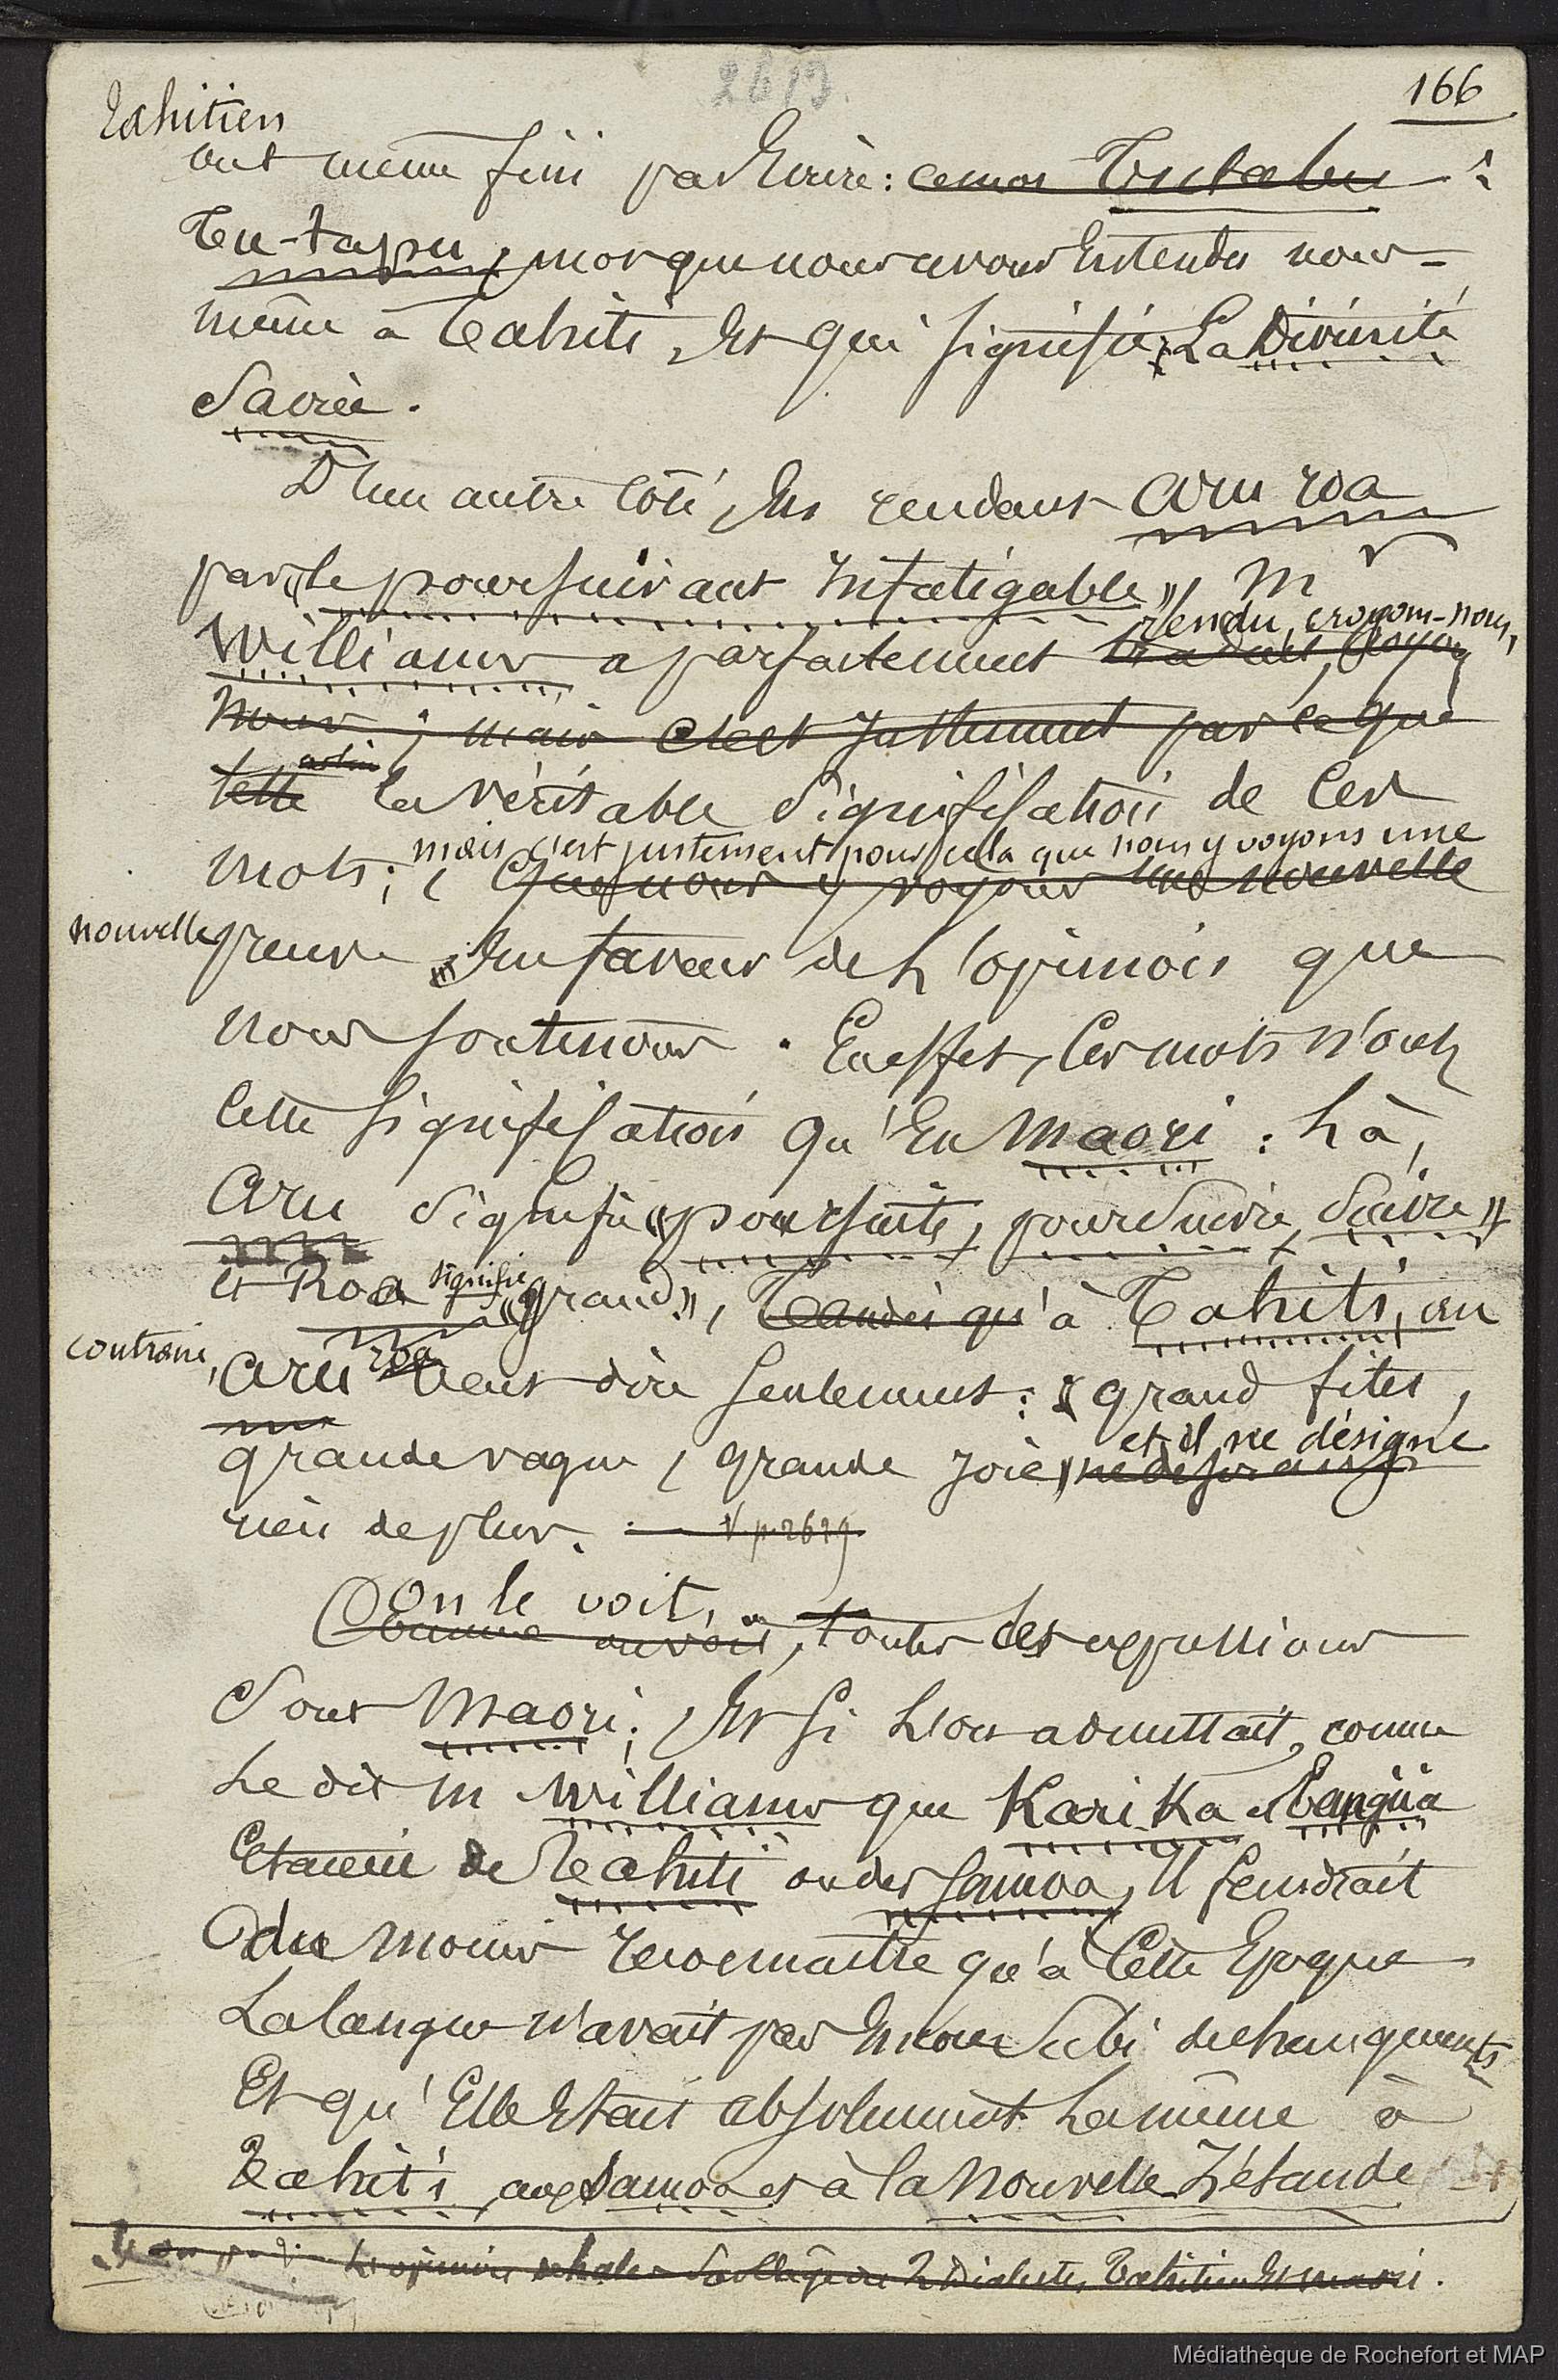 2619
166
Tahitien
ont même fini par Ecrire : ce mot Tutabu :
Tu-tapu, mot que nous avons Entendu nous-
même à Tahiti, Et qui signifie: La Divinité
Sacrée.
D'un autre Côté, En rendant Aru roa
par «le poursuivant Infatigable», Mr
rendu, croyons-nous,
Williams a parfaitement traduit, croyons
nous ; mais c'est justement parce que
telle
la véritable Signification de Ces
mais c'est justement pour cela que nous y voyons une
mots ; que nous y voyons une nouvelle
nouvelle preuve En faveur de l'opinion que
nous soutenons. En effet, Ces mots n'ont
Cette Signification qu'En Maori : Là,
Aru Signifie «poursuite, poursuivre, Suivre»
et Roa signifie «grand», Tandis qu'à Tahiti, au
contraire, Aru roa veut dire seulement : « grand filet,
et il ne désigne
grande vague, grande joie»
rien de plus. V p. 2619
On le voit,
Comme on voit, toutes ces expressions
Sont Maori ; Et si L'on admettait, comme
Le dit M Williams que Karika et Tangiia
Etaient de Tahiti ou des Samoa, Il faudrait
du moins reconnaître qu'à Cette Epoque
La langue n'avait pas Encore Subi de changements
Et qu'Elle Etait absolument La même à
Tahiti, aux Samoa et à la Nouvelle-Zélande
L'opinion de Hale Sur l'âge des 2 Dialectes, Tahitien Et maori.
Médiathèque de Rochefort et MAP